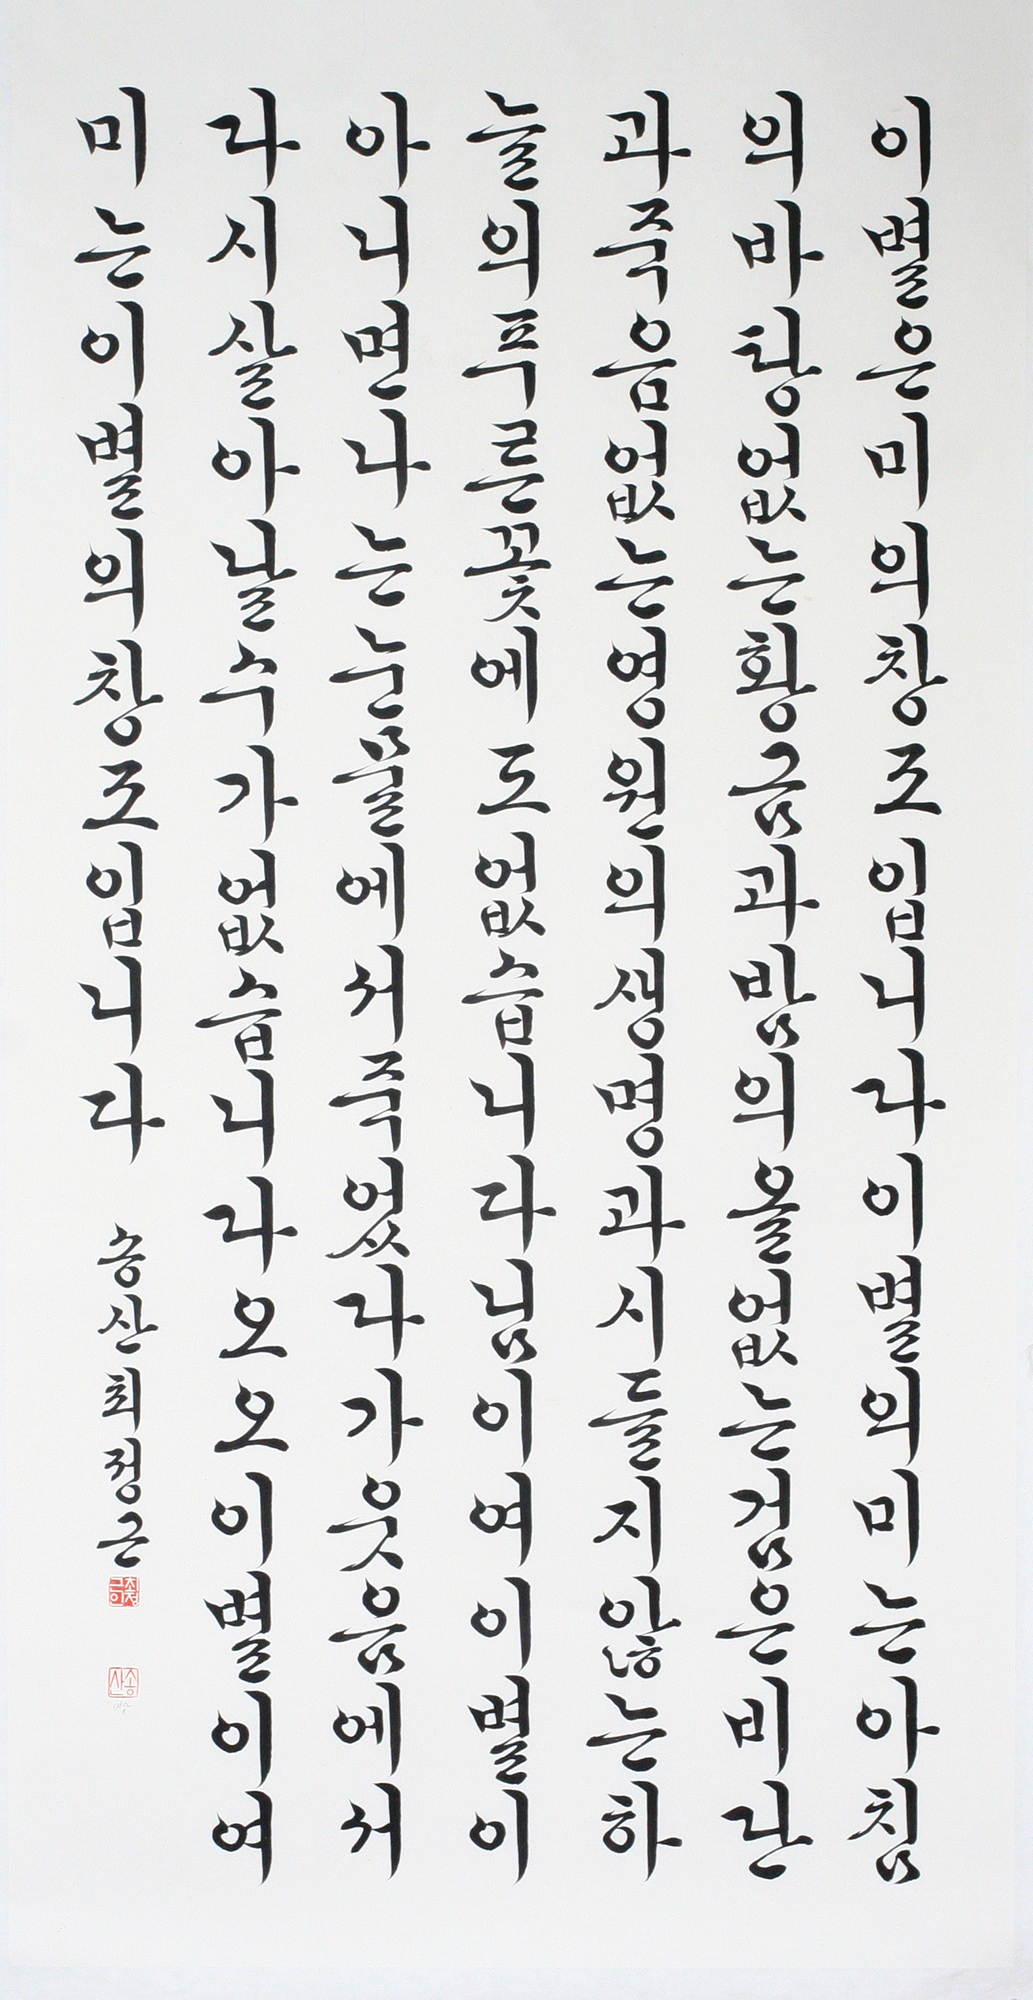 이별은미의창조입니다이별의미는아침
의바탕없는황금과밤의올없는검은비단
과죽음없는영원의생명과시들지않는하
늘의푸른꽃에도없습니다님이여이별이
아니면나는눈물에서죽었다가웃음에서
다시살아날수가없습니다오오이별이여
미는이별의창조입니다 송산최정근
송산